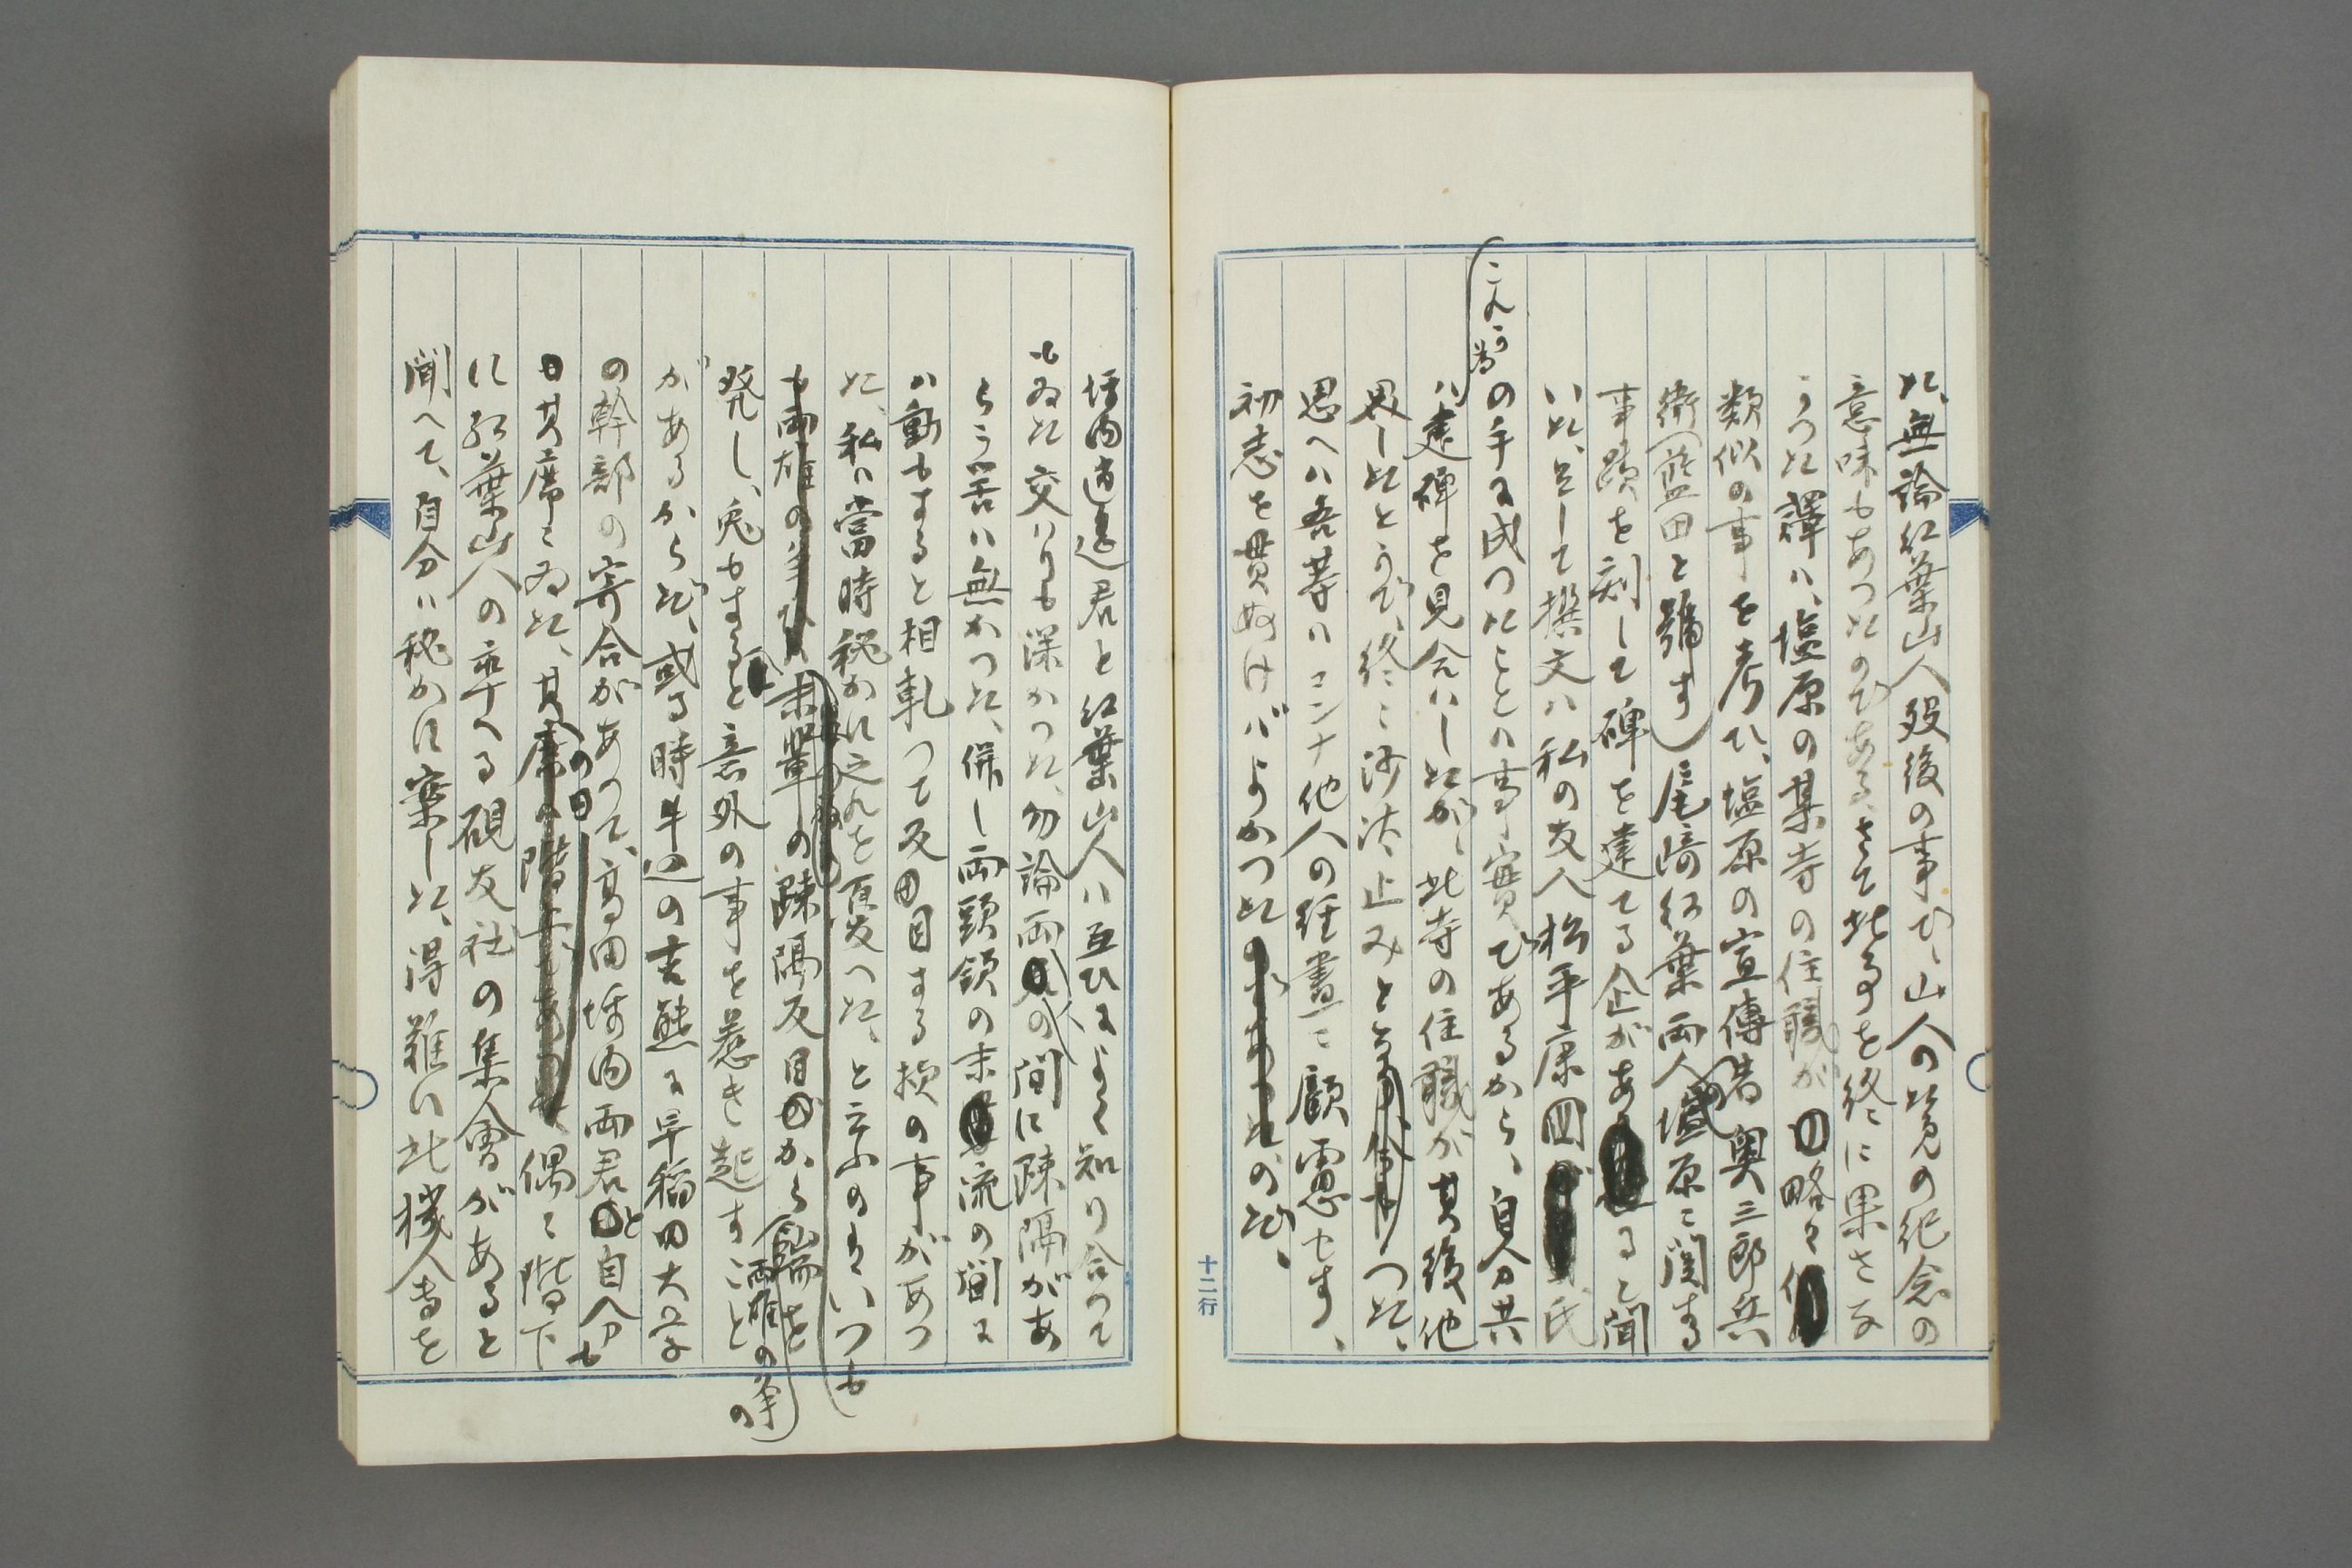 た、無論紅葉山人歿後の事で、山人の為の紀念の
意味もあつたのである、さて此事を終に果さな
かつた譯ハ、塩原の某寺の住職が略々
類似の事を考ひ、塩原の宣傳者奥三郎兵
衛(藍田と號す)尾崎紅葉両人の塩原に関する
事蹟を刻して碑を建てる企があると聞
いた、そして撰文ハ私の友人松平康国氏
の手に成つたことハ事實であるから、自分共
ハ建碑を見合ハしたが、此寺の住職が其後他
界したとかで、終に沙汰止みとなつた、
思へハ吾等ハコンナ他人の経畫に顧慮せす、
初志を貫ぬけバよかつたのだ、
十二行
坪内逍遥君と紅葉山人ハ互ひによく知り合つて
もゐた交ハりも深かつた、勿論両人の間に疎隔があ
らう筈ハ無かつた、併し両頭領の末流の間に
ハ動もすると相軋つて反目する様の事があつ
た、私ハ當時秘かに之れを憂へた、と云ふのはいつも
両雄の争
末輩の疎隔反目から端を
発し、兎もすると意外の事を惹き起すこと
があるからだ、或る時牛込の吉熊に早稲田大学
の幹部の寄合があつて、高田坪内両君と自分も
其席にゐた、其の日偶々階下
に紅葉山人の率へる硯友社の集會があると
聞へて、自分ハ秘かに案した、得難い此機会を